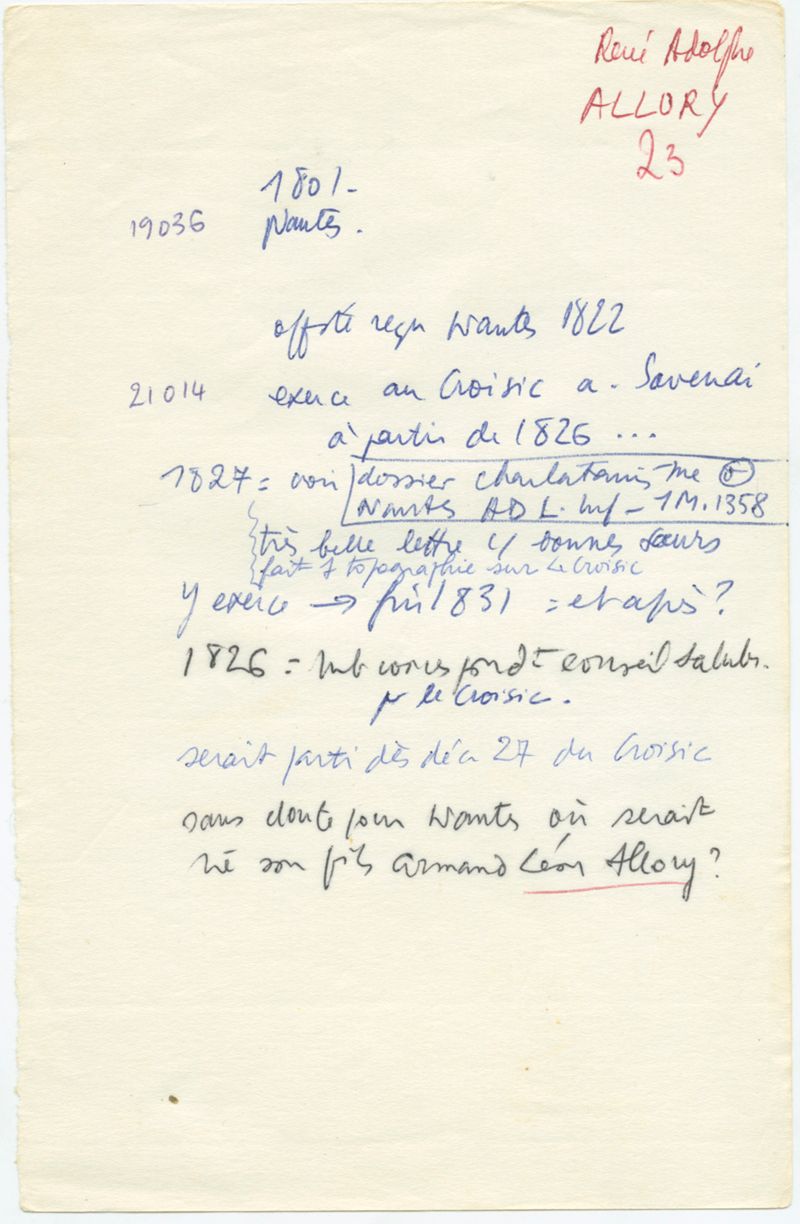 René Adolphe
ALLORY
23
1801-
19036 Nantes.
offsté reçu Nantes 1822
21014 exerce au Croisic a. Savenai
à partir de 1826 ...
1827 = voir dossier charlatanisme
Nantes AD L. Inf - 1M.1358
très belle lettre c/ bonnes sœurs
fait 1 topographie sur Le Croisic
y exerce → fin 1831 = et après?
1826 = mb correspondt conseil salub.
pr le Croisic.
serait parti dès déc 27 du Croisic
sans doute pour Nantes où serait
né son fils Armand Léon Allory?